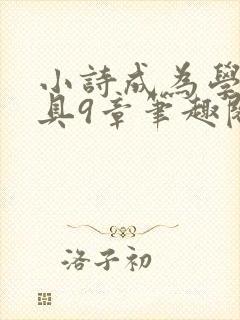 小詩成為學
具9章筆趣閣
洛子初